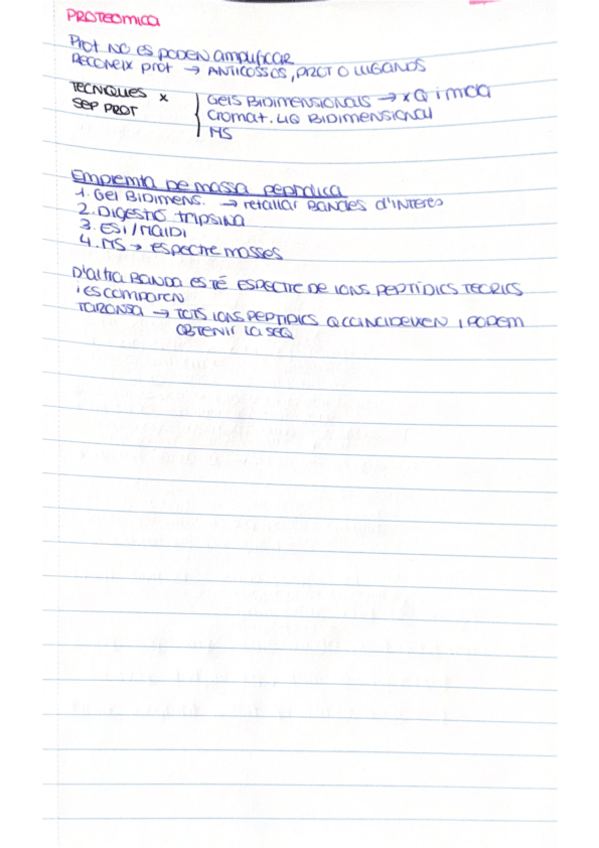 PROTEOMICA
Prot NO ES PODEN amplificar
RECONEIX prot → ANTICOSSOS, PROT O LLIGANDS
TECNIQUES x
SEP PROT
GELS BIDIMENSIONALS → x Q i mcla
Cromat. LIQ BIDIMENSIONAL
MS
Empremta de massa peptidica
1. Gel BIDIMENS. → retallar BANDES d'INTERES
2. DIGESTIÓ tripsina
3. ESI/MALDI
4. MS → ESPECTRE masses
D'altra BANDA ES TÉ ESPECTRE DE IONS PEPTÍDICS TEORICS
i ES COMPAREN
TARONJA → TOTS IONS PEPTIDICS Q COINCIDEIXEN i PODEM
OBTENIR LA SEQ